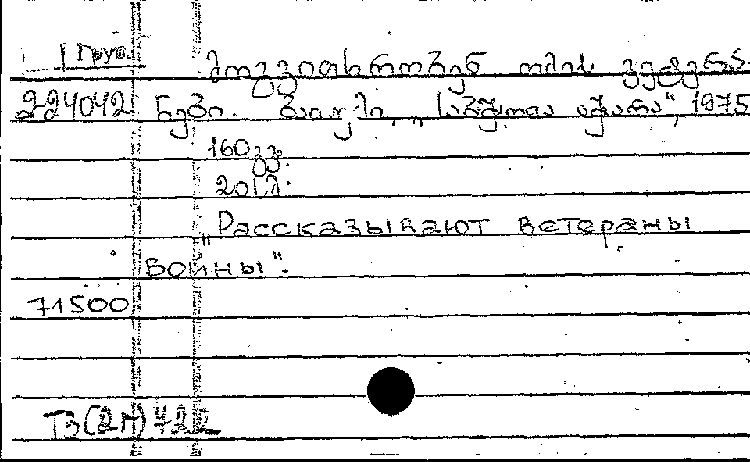 Груз.
მოგვითხრობენ ომის ვეტერა-
224042 ნები. ბათუმი, „საბჭოთა აჭარა", 1975
160გვ.
20 კ.
„Рассказывают ветераны
войны".
71500
Т3(2Г)722